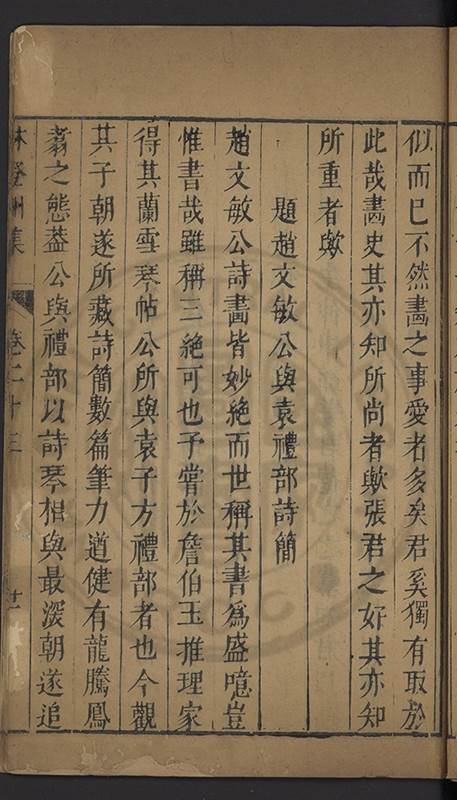 似而已不然畵之事愛者多矣君奚獨有取於
此哉畵史其亦知所尚者歟張君之好其亦知
所重者歟
題趙文敏公與袁禮部詩簡
趙文敏公詩畵皆妙絶而世稱其書爲盛噫豈
惟書哉雖稱三絶可也予嘗於詹伯玉推理家
得其蘭雪琴帖公所與袁子方禮部者也今觀
其子朝遂所藏詩簡數篇筆力遒健有龍騰鳳
翥之態葢公與禮部以詩琴相與最深朝遂追
林登州集
卷二十三
十一